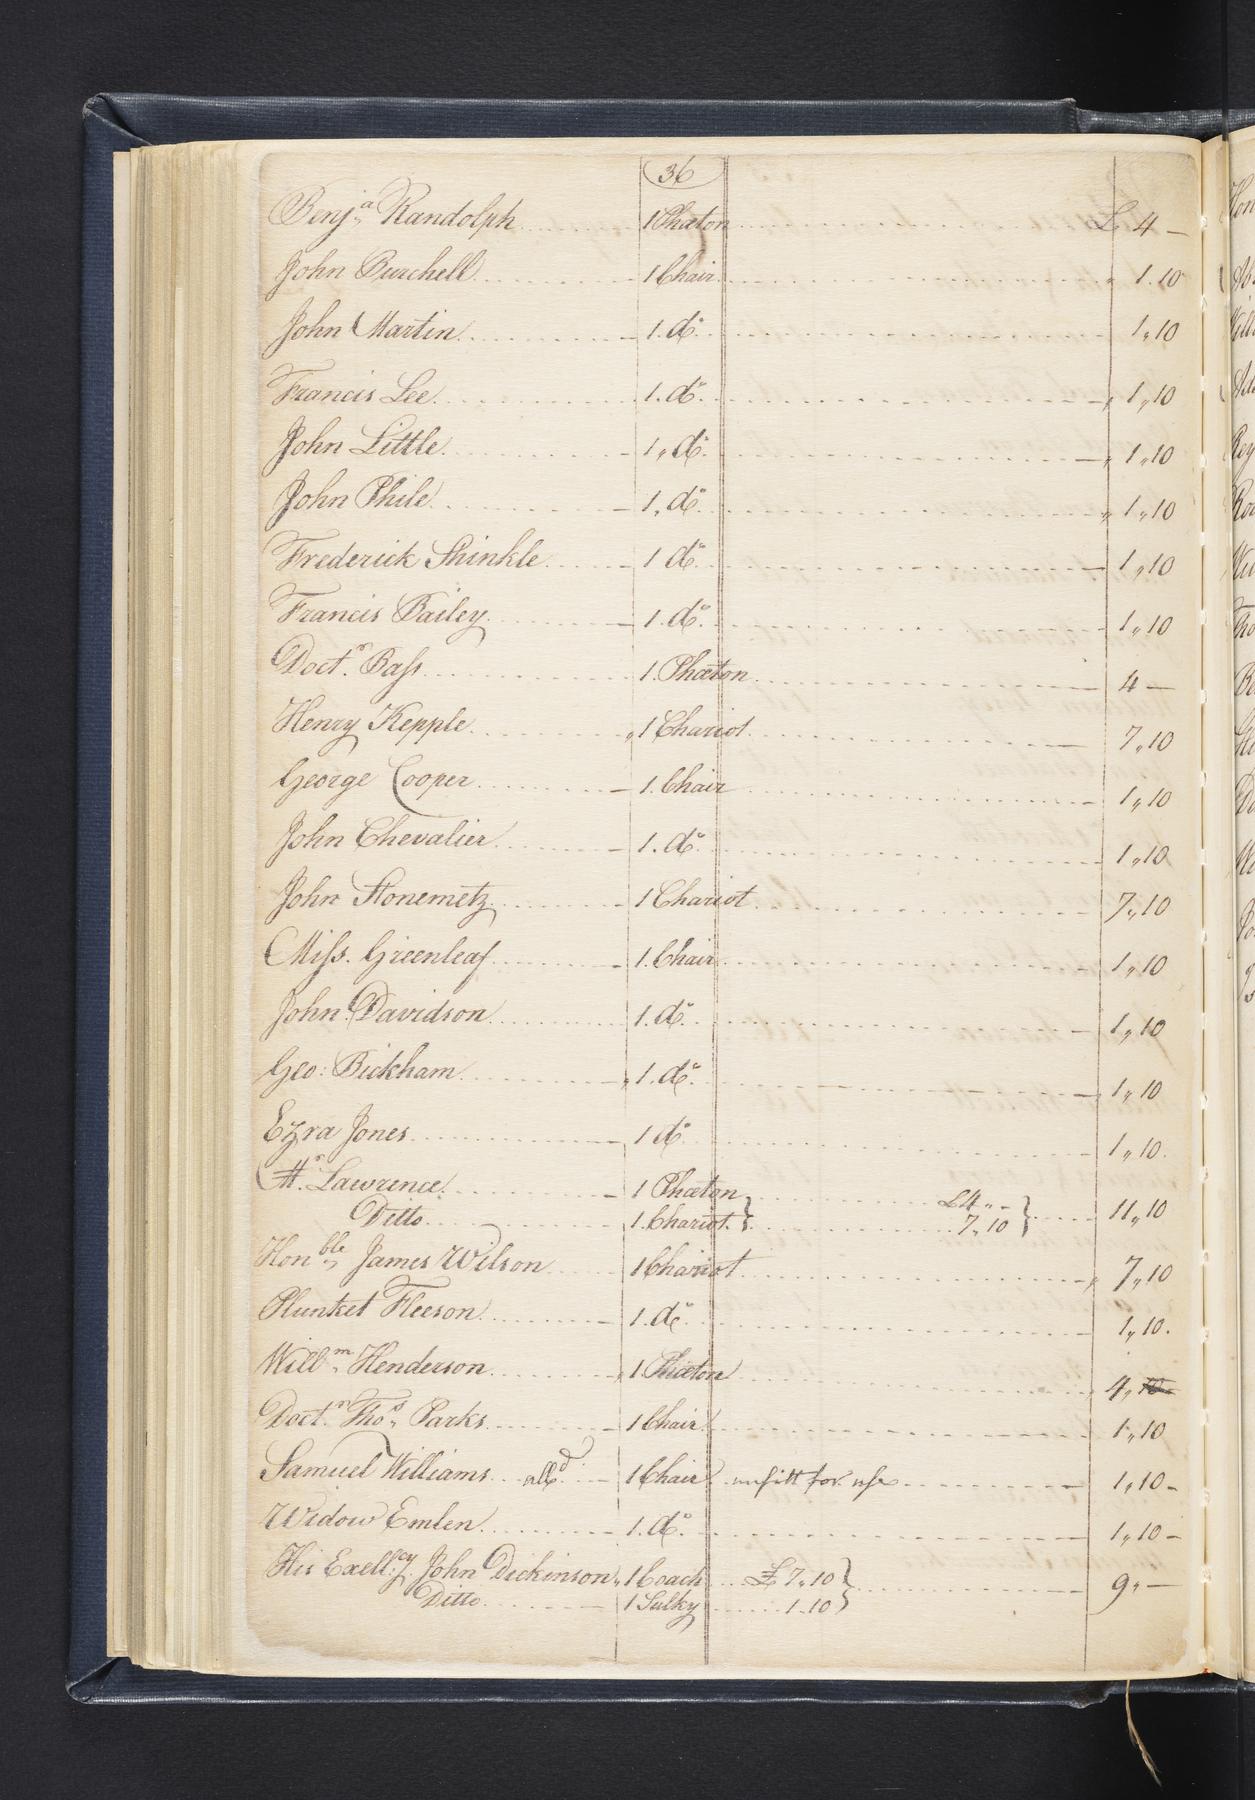 36
Benj.ª Randolph 1 Phæton £ 4 —
John Burchell 1 Chair 1.10
John Martin 1. d.º 1„10
Francis Lee 1. d.º 1„10
John Little 1„ d.º 1„10
John Phile 1„ d.º 1„10
Frederick Shinkle 1 d.º 1„10
Francis Bailey 1. d.º 1„10
Doct.r Baſs 1. Phæton 4 —
Henry Kepple 1 Chariot 7„10
George Cooper 1. Chair 1„10
John Chevalier 1. d.º 1„10
John Stonemetz 1 Chariot 7„10
Miſs. Greenleaf 1. Chair 1„10
John Davidson 1. d.º 1„10
Geo: Bickham 1. d.º 1„10
Ezra Jones 1 d.º 1„10.
Lawrence 1 Phæton £4„ -
Ditto 1. Chariot } 7„10 } 11„10
Hon.ble James Wilson 1 Chariot 7„10
Plunket Fleeson 1. d.º 1„10.
Will.m Henderson 1 Phæton 4„
Doct.r Tho.s Parks 1 Chair 1„10
Samuel Williams all.d 1 Chair unfitt for uſe 1„10 -
Widow Emlen 1. d.º 1„10 -
His Exell.cy John Dickinson 1 Coach £ 7„10 } 9„ —
Ditto 1 Sulky 1.10